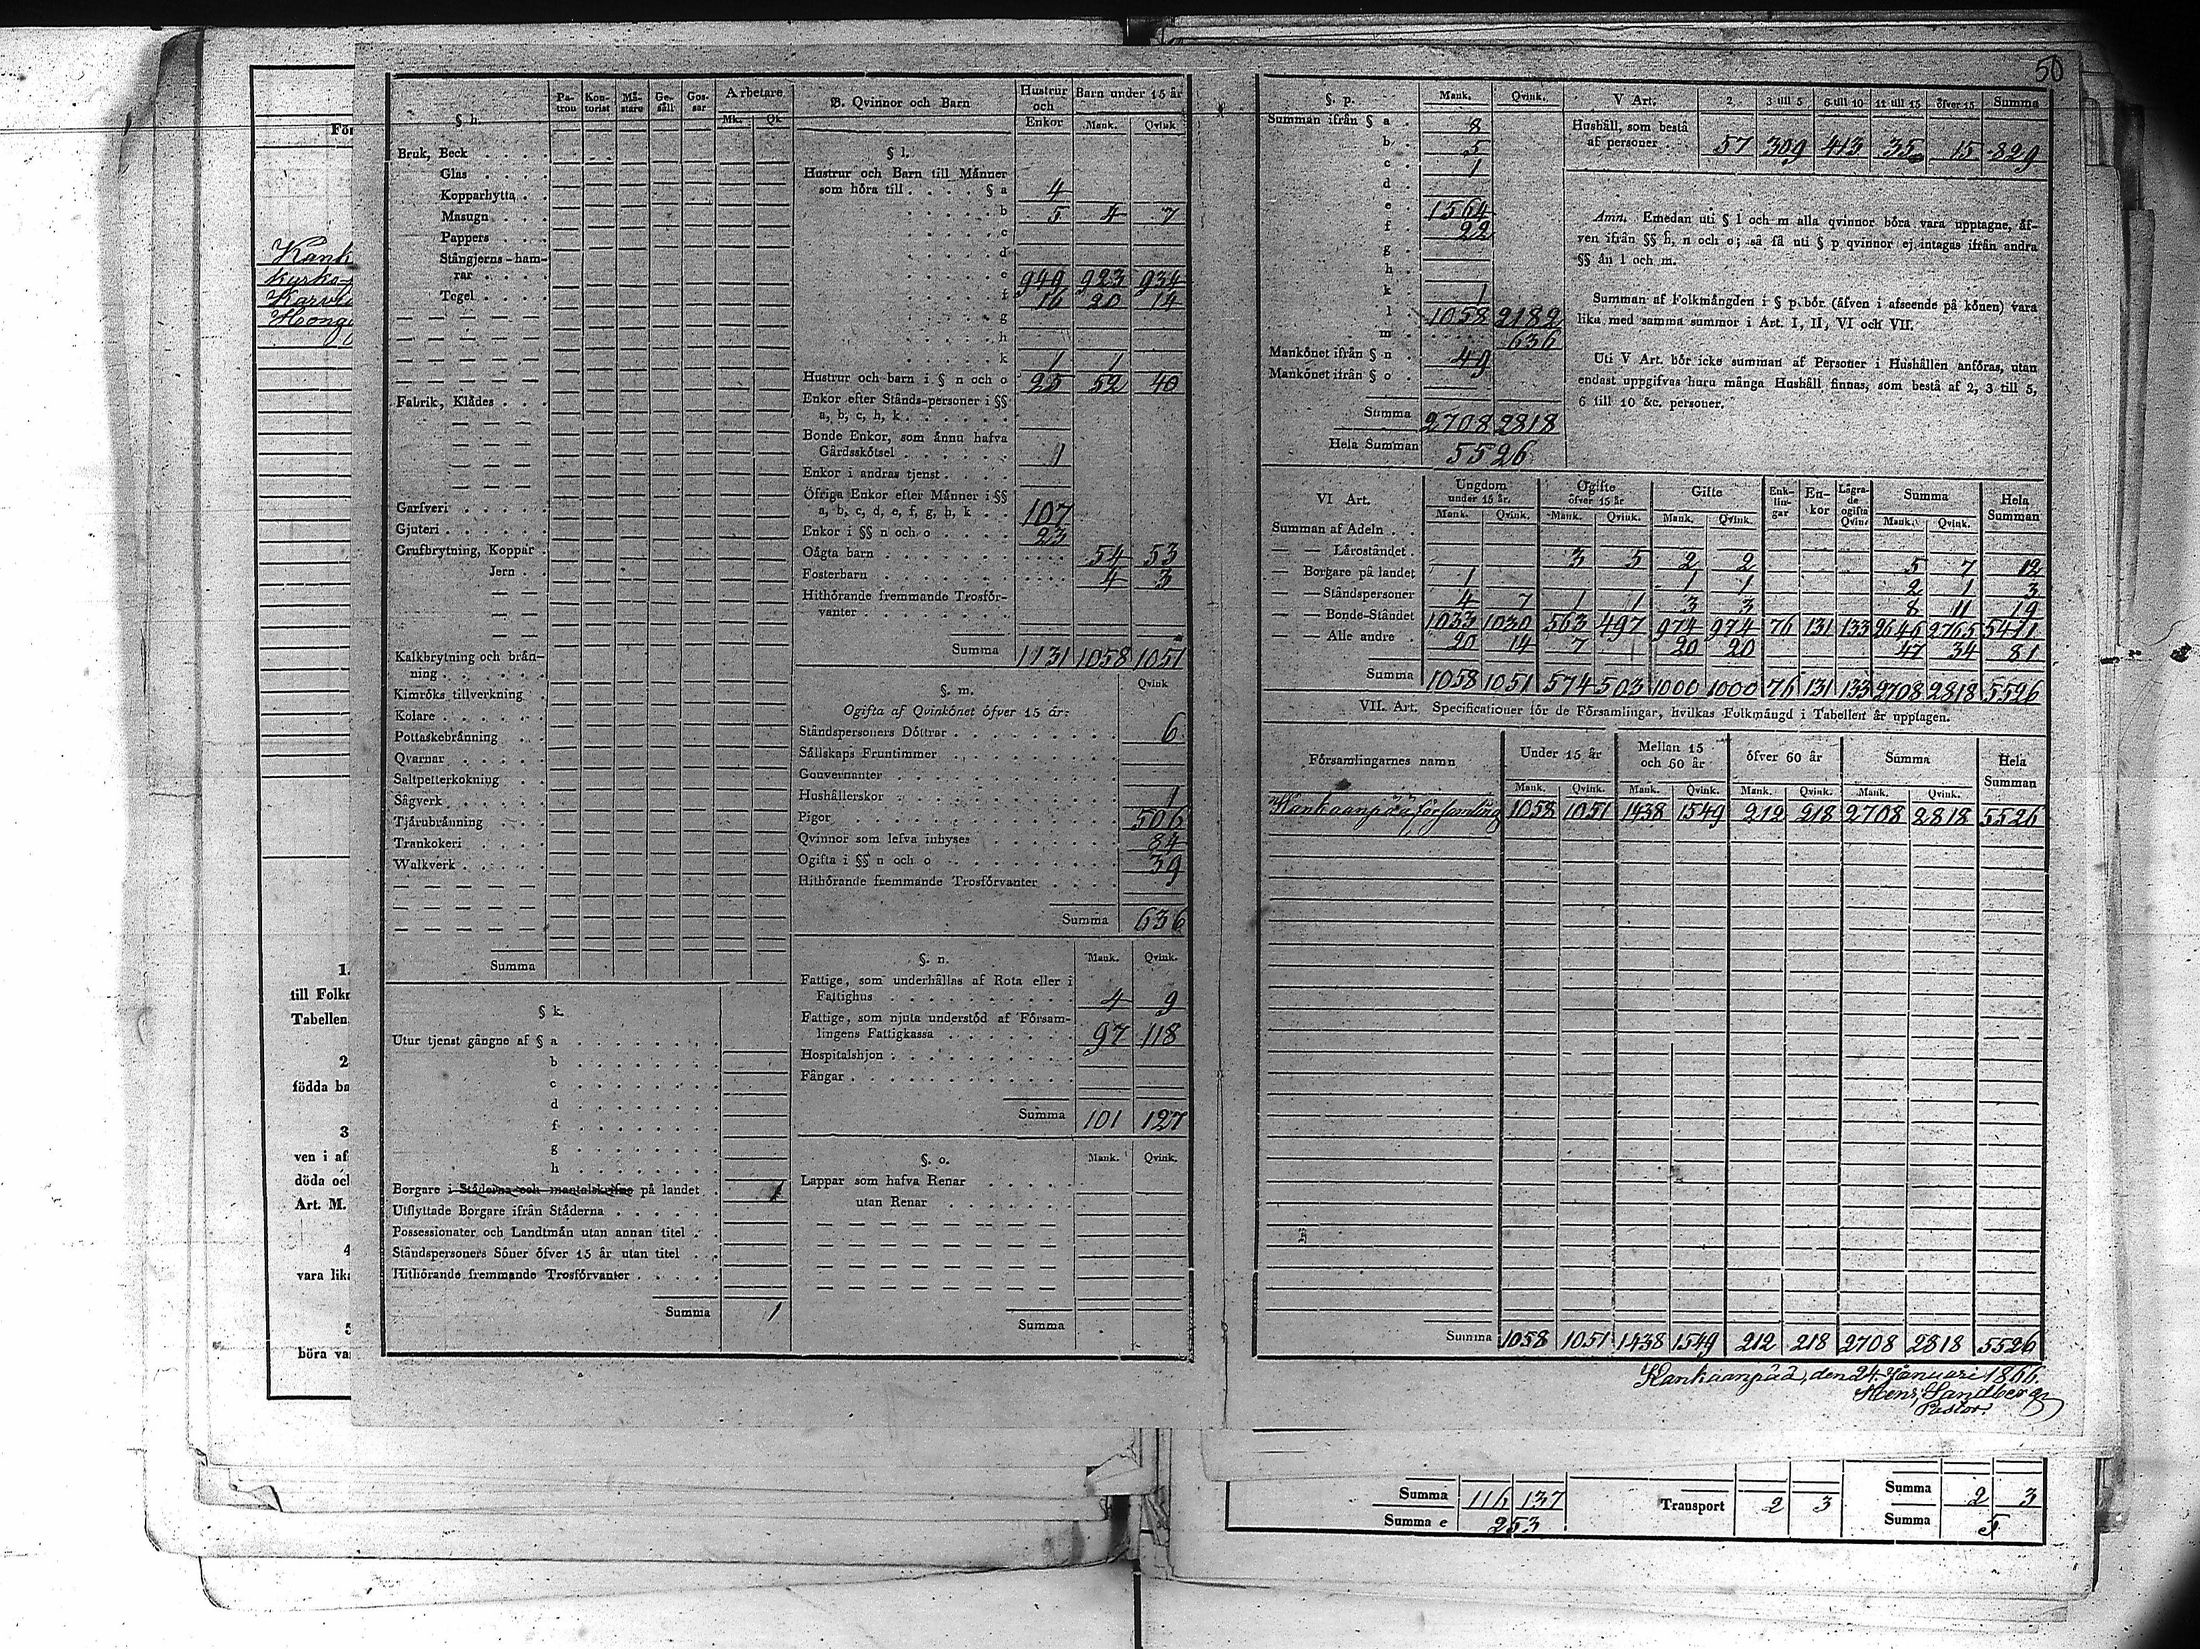 50
För
Kank
Kyrko
Karvia
Hong
1.
till Folk
Tabellen
2
födda ba
3
ven i af
döda och
Art. M.
4
vara lik
5
böra va
§ h. Patron Kontorist Mästare Gesäll Gossar Arbetare Mk. Qk
Bruk, Beck
Glas
Kopparhytta
Masugn
Pappers
Stångjerns-hamrar
Tegel
Fabrik, Klädes
Garfveri
Gjuteri
Grufbrytning, Koppar
Jern
Kalkbrytning och bränning
Kimröks tillverkning
Kolare
Pottaskebränning
Qvarnar
Saltpetterkokning
Sågverk
Tjärubränning
Trankokeri
Walkverk
Summa
§ k.
Utur tjenst gångne af § a
b
c
d
f
g
h
Borgare i Städerna och mantalskrifne på landet 1
Utflyttade Borgare ifrån Städerna
Possessionater och Landtmän utan annan titel
Ståndspersoners Söner öfver 15 år utan titel
Hithörande fremmande Trosförvanter
Summa 1
B. Qvinnor och Barn Hustrur och Enkor Barn under 15 år Mank. Qvink
§ l.
Hustrur och Barn till Männer
som höra till § a 4
b 5 4 7
c
d
e 949 923 934
f 16 20 14
g
h
k 1 1
Hustrur och barn i § n och o 25 52 40
Enkor efter Stånds-personer i §§
a, b, c, h, k
Bonde Enkor, som ännu hafva
Gårdsskötsel 1
Enkor i andras tjenst
Öfriga Enkor efter Männer i §§
a, b, c, d, e, f, g, h, k 107
Enkor i §§ n och o 23
Oägta barn 54 53
Fosterbarn 4 3
Hithörande fremmande Trosförvanter
Summa 1131 1058 1051
§. m. Qvink
Ogifta af Qvinkönet öfver 15 år:
Ståndspersoners Döttrar 6
Sällskaps Fruntimmer
Gouvernanter
Hushållerskor 1
Pigor 506
Qvinnor som lefva inhyses 84
Ogifta i §§ n och o 39
Hithörande fremmande Trosförvanter
Summa 636
§. n. Mank. Qvink.
Fattige, som underhållas af Rota eller i
Fattighus 4 9
Fattige, som njuta understöd af Församlingens Fattigkassa 97 118
Hospitalshjon
Fångar
Summa 101 127
§. o. Mank. Qvink.
Lappar som hafva Renar
utan Renar
Summa
§. p. Mank. Qvink.
Summan ifrån § a 8
b 5
c 1
d
e 1564
f 22
g
h
k 1
l 1058 2182
m 636
Mankönet ifrån § n 49
Mankönet ifrån § o
Summa 2708 2818
Hela Summan 5526
V Art. 2 3 till 5 6 till 10 11 till 15 öfver 15 Summa
Hushåll, som bestå
af personer 57 309 413 35 15 829
Anm. Emedan uti § l och m alla qvinnor böra vara upptagne, äfven ifrån §§ h, n och o; så få uti § p qvinnor ej intagas ifrån andra
§§ än l och m.
Summan af Folkmängden i § p bör (äfven i afseende på könen) vara
lika med samma summor i Art. I, II, VI och VII.
Uti V Art. bör icke summan af Personer i Hushållen anföras, utan
endast uppgifvas huru många Hushåll finnas, som bestå af 2, 3 till 5,
6 till 10 &c. personer.
VI Art. Ungdom under 15 år. Ogifte öfver 15 år Gifte Enklingar Enkor Lägrade ogifta Qvin: Summa Hela Summan
Mank. Qvink. Mank. Qvink. Mank. Qvink. Mank. Qvink.
Summan af Adeln
— — Läroståndet 3 5 2 2 5 7 12
— Borgare på landet 1 1 1 2 1 3
— — Ståndspersoner 4 7 1 1 3 3 8 11 19
— — Bonde-Ståndet 1033 1030 563 497 974 974 76 131 133 2646 2765 5411
— — Alle andre 20 14 7 20 20 47 34 81
Summa 1058 1051 574 503 1000 1000 76 131 133 2708 2818 5526
VII. Art. Specificationer för de Församlingar, hvilkas Folkmängd i Tabellen är upptagen.
Församlingarnes namn Under 15 år Mellan 15 och 60 år öfver 60 år Summa Hela Summan
Mank. Qvink. Mank. Qvink. Mank. Qvink. Mank. Qvink.
Kankaanpää församling 1058 1051 1438 1549 212 218 2708 2818 5526
Summa 1058 1051 1438 1549 212 218 2708 2818 5526
Kankaanpää, den 24 Januari 1866.
Henr. Sandberg
Pastor.
Summa 116 137 Transport 2 3 Summa 2 3
Summa e 253 Summa 5